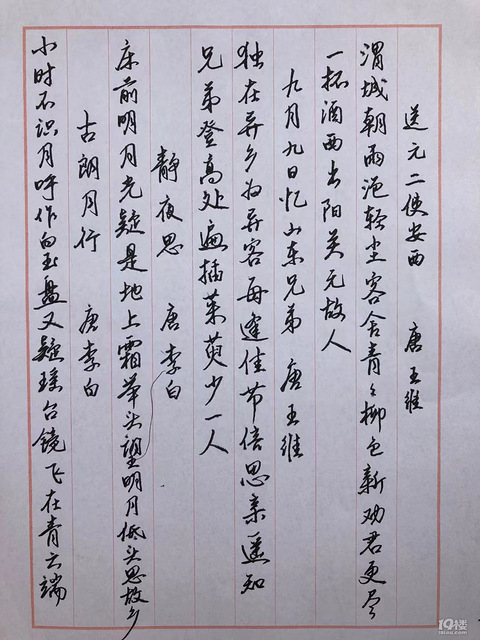 送元二使安西 唐王维
渭城朝雨浥轻尘客舍青々柳色新劝君更尽
一杯酒西出阳关无故人
九月九日忆山东兄弟 唐王维
独在异乡为异客每逢佳节倍思亲遥知
兄弟登高处遍插茱萸少一人
静夜思 唐李白
床前明月光疑是地上霜举头望明月低头思故乡
古朗月行 唐李白
小时不识月呼作白玉盘又疑瑶台镜飞在青云端
19楼
19lou.com